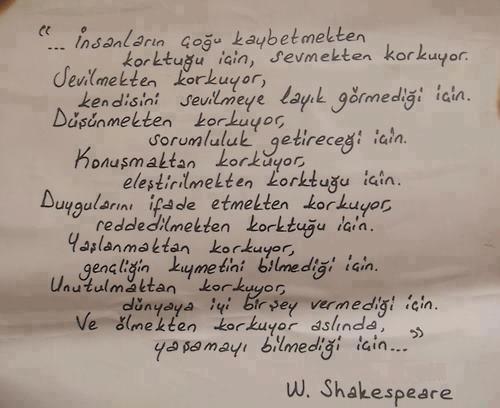 “... İnsanların çoğu kaybetmekten
korktuğu için, sevmekten korkuyor.
Sevilmekten korkuyor,
kendisini sevilmeye layık görmediği için.
Düşünmekten korkuyor,
sorumluluk getireceği için.
Konuşmaktan korkuyor,
eleştirilmekten korktuğu için.
Duygularını ifade etmekten korkuyor,
reddedilmekten korktuğu için.
Yaşlanmaktan korkuyor,
gençliğin kıymetini bilmediği için.
Unutulmaktan korkuyor,
dünyaya iyi birşey vermediği için.
Ve ölmekten korkuyor aslında,
yaşamayı bilmediği için...”
W. Shakespeare